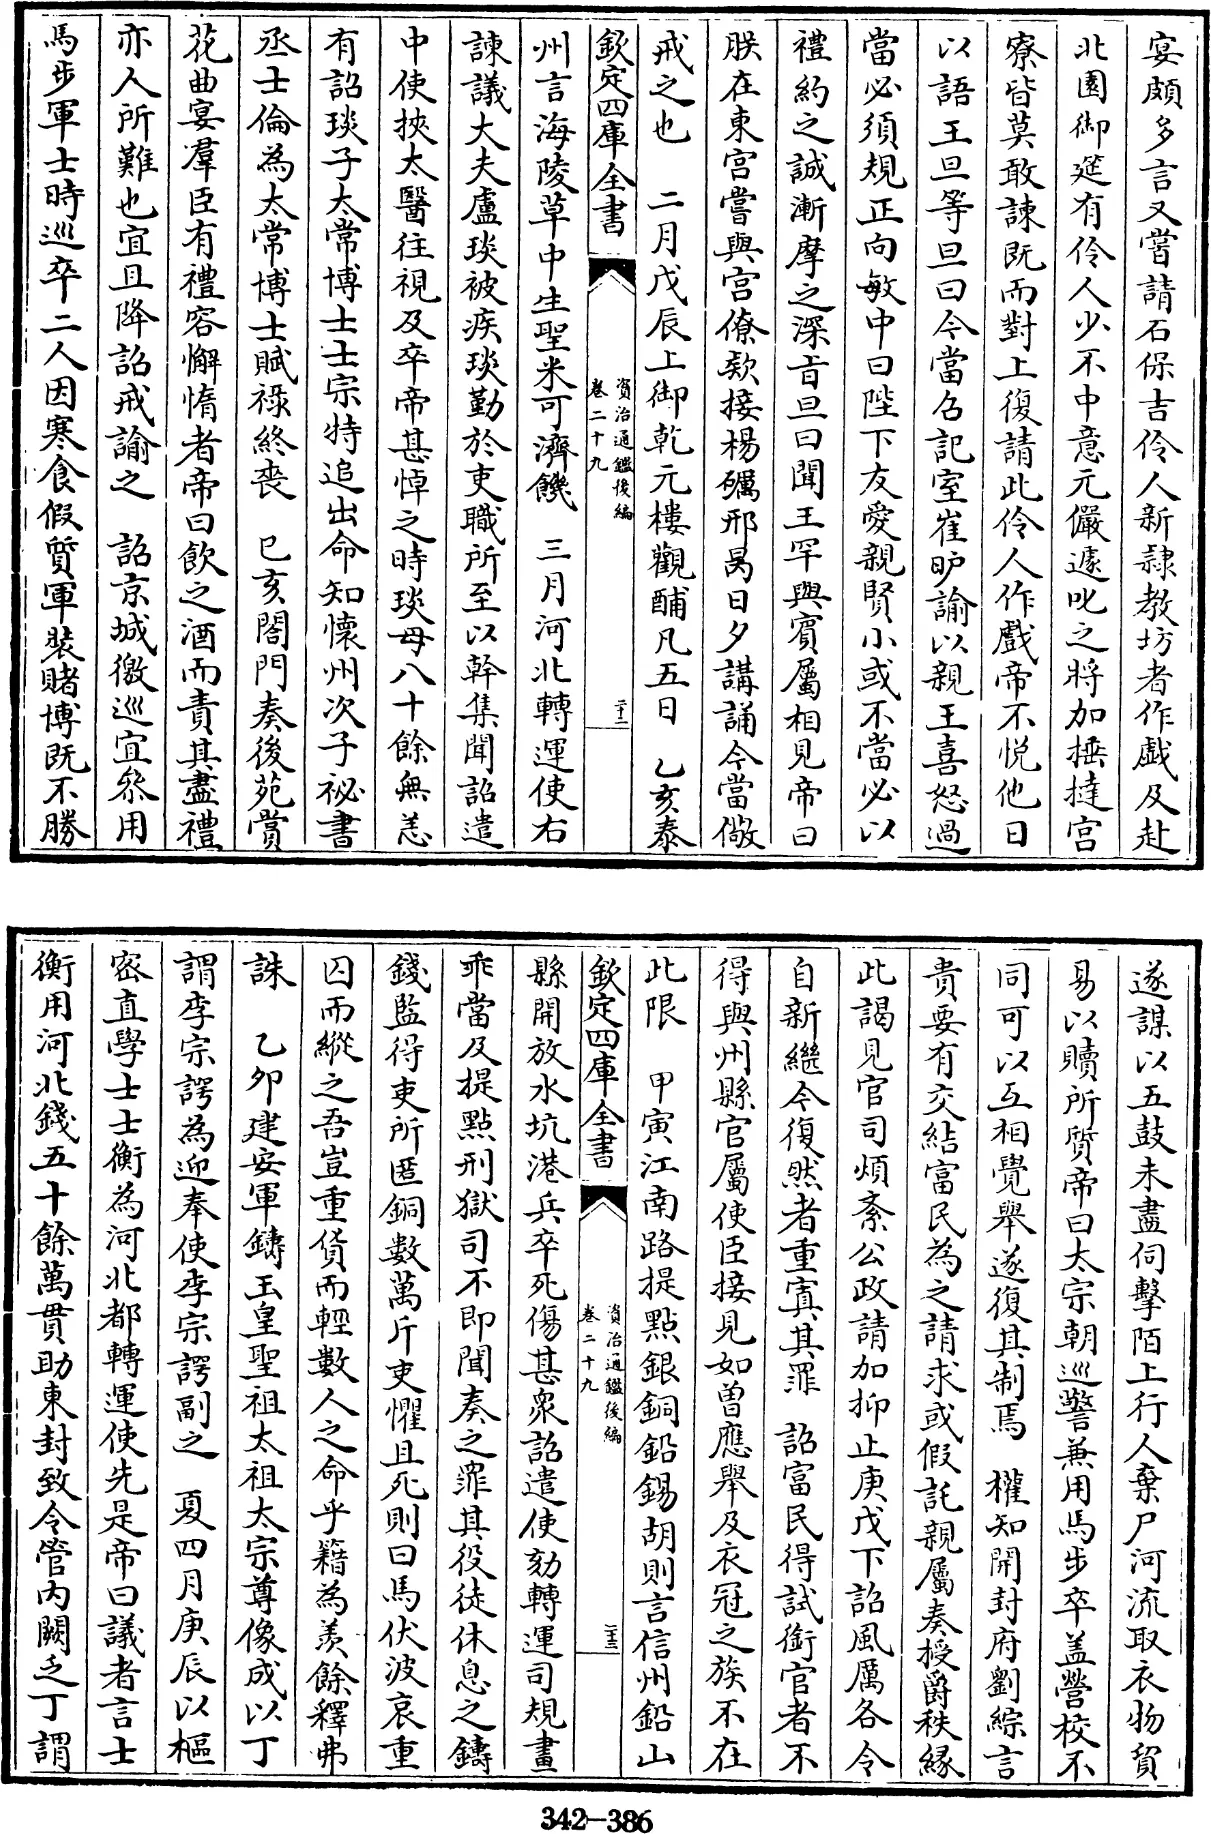 宴頗多言又嘗請石保吉伶人新隷教坊者作戯及赴
北園御筵有伶人少不中意元儼遽叱之將加捶撻宫
寮皆莫敢諫既而對上復請此伶人作戲帝不悦他日
以語王旦等旦曰今當召記室崔昈諭以親王喜怒過
當必須規正向敏中曰陛下友愛親賢小或不當必以
禮約之誠漸摩之深㫖旦曰聞王罕與賓屬相見帝曰
朕在東宫嘗與宫僚欵接楊礪邢昺日夕講誦今當儆
戒之也　二月戊辰上御乾元樓觀酺凡五日　乙亥泰
欽定四庫全書
資治通鑑後編
卷二十九
二十二
州言海陵草中生聖米可濟饑　三月河北轉運使右
諫議大夫盧琰被疾琰勤於吏職所至以幹集聞詔遣
中使挾太醫往視及卒帝甚悼之時琰母八十餘無恙
有詔琰子太常博士士宗特追出命知懷州次子祕書
丞士倫為太常博士賦祿終喪　己亥閤門奏後苑賞
花曲宴羣臣有禮容懈惰者帝曰飲之酒而責其盡禮
亦人所難也宜且降詔戒諭之　詔京城徼巡宜叅用
馬步軍士時巡卒二人因寒食假質軍裝賭博既不勝
遂謀以五鼓未盡伺擊陌上行人棄尸河流取衣物貿
易以贖所質帝曰太宗朝巡警兼用馬步卒蓋營校不
同可以互相覺舉遂復其制焉　權知開封府劉綜言
貴要有交結富民為之請求或假託親屬奏授爵秩緣
此謁見官司煩紊公政請加抑止庚戌下詔風厲各令
自新繼今復然者重寘其罪　詔富民得試銜官者不
得與州縣官屬使臣接見如曽應舉及衣冠之族不在
此限　甲寅江南路提點銀銅鉛錫胡則言信州鉛山
欽定四庫全書
資治通鑑後編
卷二十九
二十三
縣開放水坑港兵卒死傷甚衆詔遣使劾轉運司規畫
乖當及提點刑獄司不即聞奏之罪其役徒休息之鑄
錢監得吏所匿銅數萬斤吏懼且死則曰馬伏波哀重
囚而縱之吾豈重貨而輕數人之命乎籍為羨餘釋弗
誅　乙卯建安軍鑄玉皇聖祖太祖太宗尊像成以丁
謂李宗諤為迎奉使李宗諤副之　夏四月庚辰以樞
密直學士士衡為河北都轉運使先是帝曰議者言士
衡用河北錢五十餘萬貫助東封致令管内闕乏丁謂
342-386